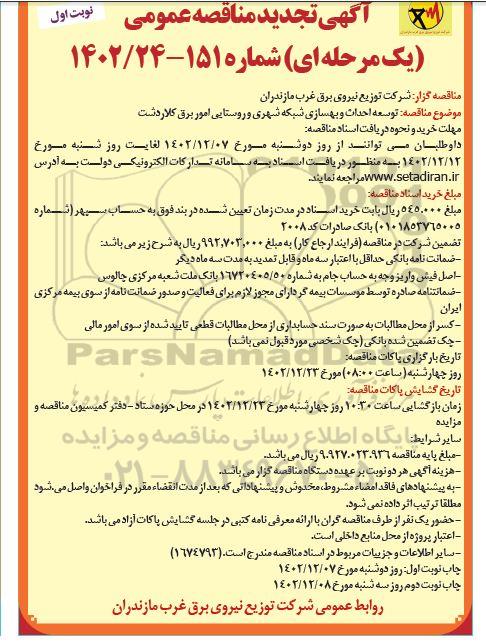 نوبت اول
آگهی تجدید مناقصه عمومی
(یک مرحله ای) شماره ۱۵۱-۱۴۰۲/۲۴
مناقصه گزار: شرکت توزیع نیروی برق غرب مازندران
موضوع مناقصه: توسعه احداث و بهسازی شبکه شهری و روستایی امور برق کلاردشت
مهلت خرید و نحوه دریافت اسناد مناقصه:
داوطلبان می توانند از روز دوشنبه مورخ ۱۴۰۲/۱۲/۰۷ لغایت روز شنبه مورخ
۱۴۰۲/۱۲/۱۲ به منظور دریافت اسناد به سامانه تدارکات الکترونیکی دولت به آدرس
www.setadiran.ir مراجعه نمایند.
مبلغ خرید اسناد مناقصه:
مبلغ ۵۴۵.۰۰۰ ریال بابت خرید اسناد در مدت زمان تعیین شده در بند فوق به حساب سپهر (شماره
۰۱۰۱۸۵۲۷۶۵۰۰۵) بانک صادرات کد ۲۰۰۸
تضمین شرکت در مناقصه (فرایند ارجاع کار) به مبلغ ۹۹۲,۷۰۲,۰۰۰ ریال به شرح زیر می باشد:
-ضمانت نامه بانکی حداقل با اعتبار سه ماه و قابل تمدید به مدت سه ماه دیگر
-اصل فیش واریز وجه به حساب جام به شماره ۱۶۷۲۰۴۰۵/۵۰ بانک ملت شعبه مرکزی چالوس
-ضمانتنامه صادره توسط موسسات بیمه گر دارای مجوز لازم برای فعالیت و صدور ضمانت نامه از سوی بیمه مرکزی
ایران
-کسر از محل مطالبات به صورت سند حسابداری از محل مطالبات قطعی تایید شده از سوی امور مالی
-چک تضمین شده بانکی (چک شخصی مورد قبول نمی باشد)
تاریخ بارگزاری پاکات مناقصه:
روز چهارشنبه (ساعت ۰۸:۰۰) مورخ ۱۴۰۲/۱۲/۲۳
تاریخ گشایش پاکات مناقصه:
زمان بازگشایی ساعت ۱۰:۳۰ روز چهارشنبه مورخ ۱۴۰۲/۱۲/۲۳ در محل حوزه ستاد -دفتر کمیسیون مناقصه و
مزایده
سایر شرایط:
-مبلغ پایه مناقصه ۹.۹۲۷.۰۲۳.۹۳۶ ریال می باشد.
-هزینه آگهی هر دو نوبت بر عهده دستگاه مناقصه گزار می باشد.
-به پیشنهادهای فاقد امضاء مشروط، مخدوش و پیشنهاداتی که بعد از مدت انقضاء مقرر در فراخوان واصل می شود
مطلقا ترتیب اثر داده نمی شود.
-حضور یک نفر از طرف مناقصه گران با ارائه معرفی نامه کتبی در جلسه گشایش پاکات آزاد می باشد.
-اعتبار پروژه از محل منابع داخلی است.
-سایر اطلاعات و جزییات مربوط در اسناد مناقصه مندرج است. (۱۶۷۴۷۹۳)
چاپ نوبت اول: روز دوشنبه مورخ ۱۴۰۲/۱۲/۰۷
چاپ نوبت دوم روز سه شنبه مورخ ۱۴۰۲/۱۲/۰۸
روابط عمومی شرکت توزیع نیروی برق غرب مازندران
ParsNamadData
پایگاه اطلاع رسانی مناقصه و مزایده